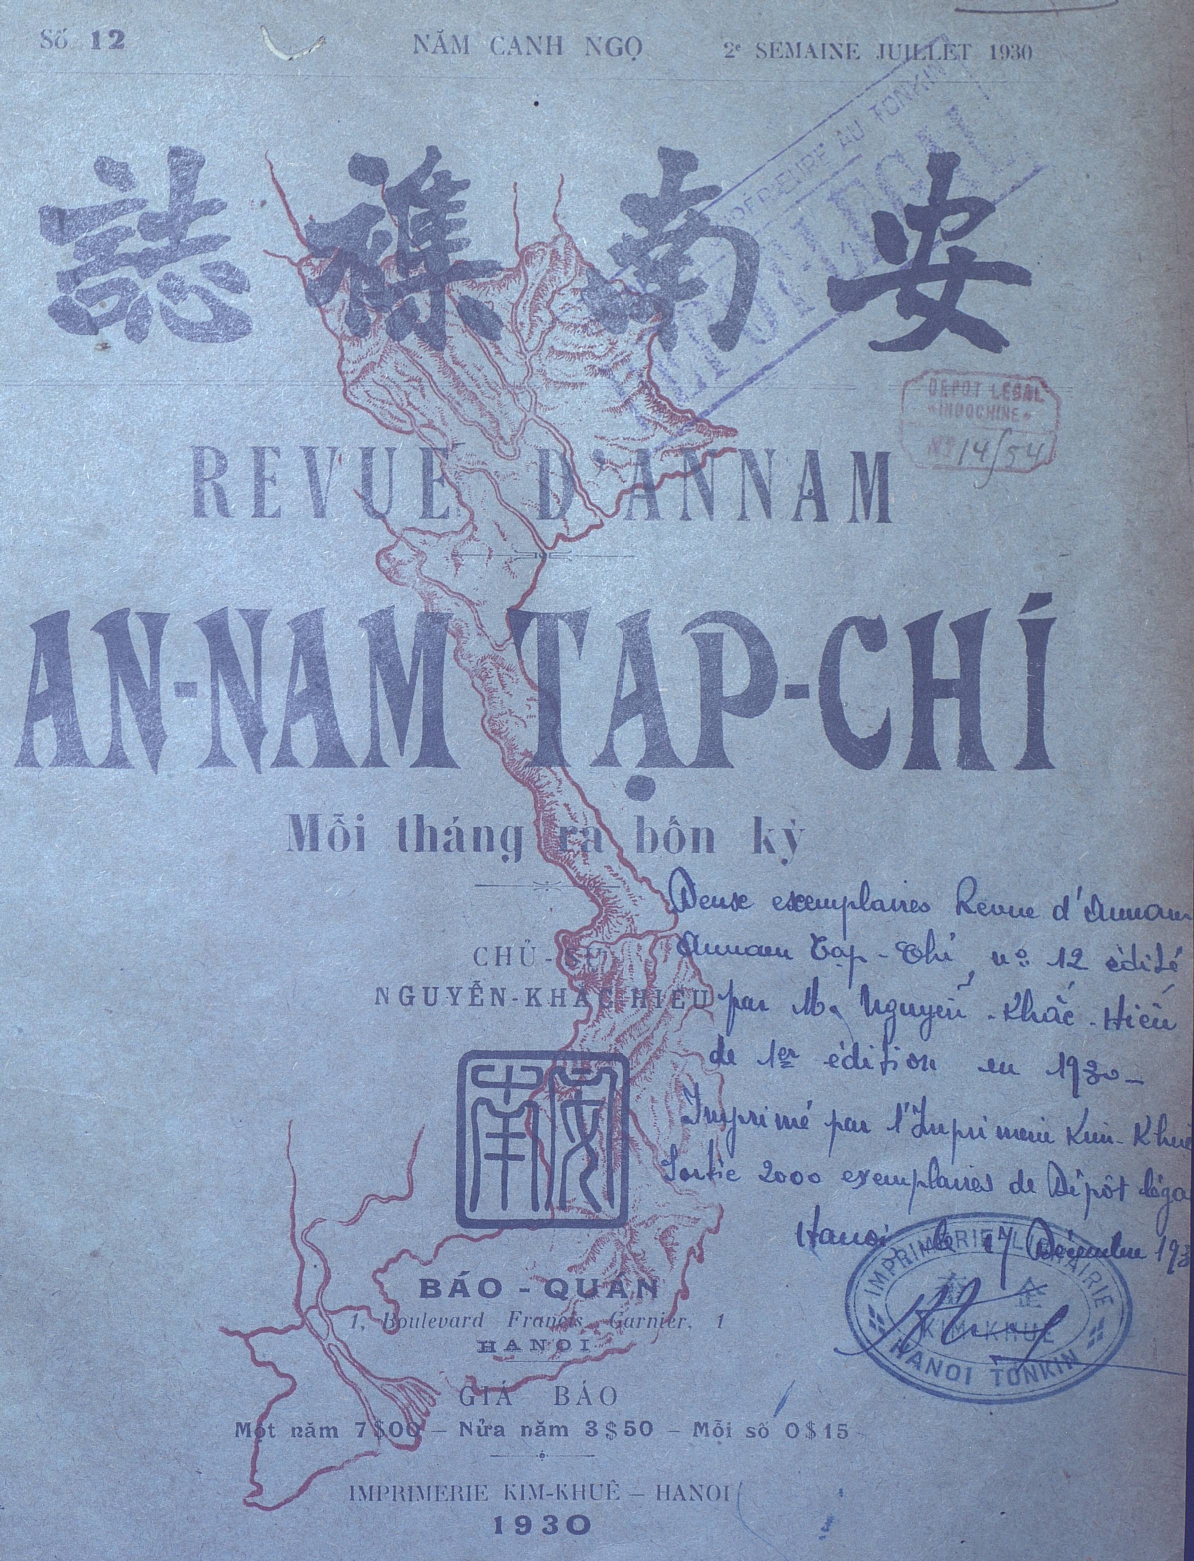 Số 12 NĂM CANH NGỌ 2e SEMAINE JUILLET 1930
安南襍誌
AU TONKIN
DÉPÔT LÉGAL
DÉPOT LÉGAL
INDOCHINE
No 14/54
REVUE D'ANNAM
AN-NAM TẠP-CHÍ
Mỗi tháng ra bốn kỳ
CHỦ-SỰ
NGUYỄN-KHẮC-HIẾU
安南
Deux exemplaires Revue d'Annam
Annam Tạp-Chí, no 12 édité
par M. Nguyễn-Khắc-Hiếu
de 1er édition en 1930 —
Imprimé par l'Imprimerie Kim-Khuê
Sortie 2000 exemplaires de Dépôt léga
Hanoi, le 17 Décembre 193
IMPRIMERIE LIBRAIRIE
金
KIM-KHUÊ
HANOI TONKIN
BÁO-QUÁN
1, Boulevard Francis Garnier, 1
HANOI
GIÁ BÁO
Một năm 7$00 — Nửa năm 3$50 — Mỗi số 0$15
IMPRIMERIE KIM-KHUÊ — HANOI
1930